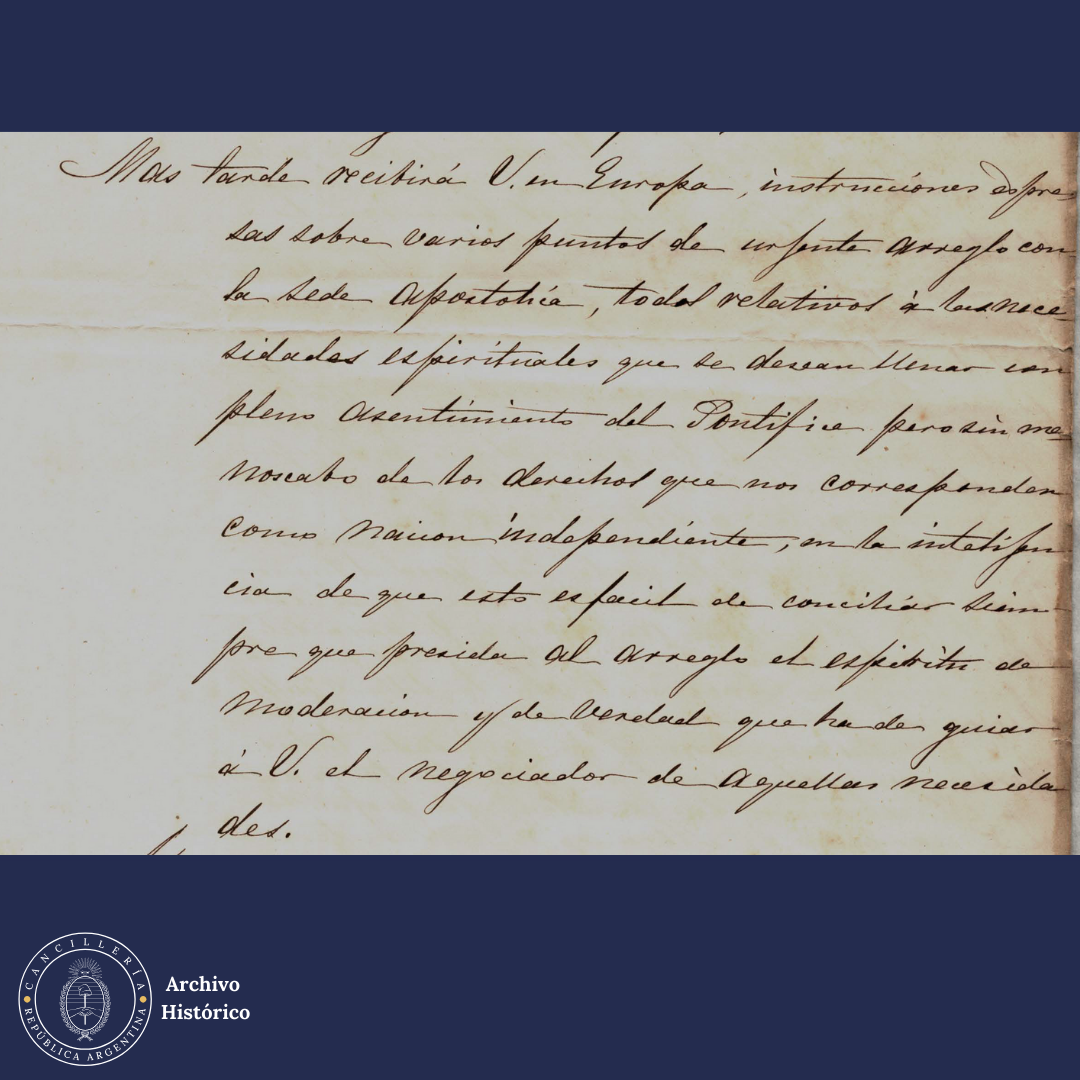 Mas tarde recibirá V. en Europa, instrucciones espre
sas sobre varios puntos de urgente arreglo con
la sede Apostolica, todos relativos à las nece
sidades espirituales que se desean llenar con
pleno asentimiento del Pontifice pero sin me
noscabo de los derechos que nos corresponden
como Nacion independiente, en la inteligen
cia de que esto es facil de conciliar siem
pre que presida al arreglo el espiritu de
moderacion y de verdad que ha de guiar
á V. el negociador de aquellas necesida
des.
CANCILLERÍA
REPÚBLICA ARGENTINA
Archivo
Histórico